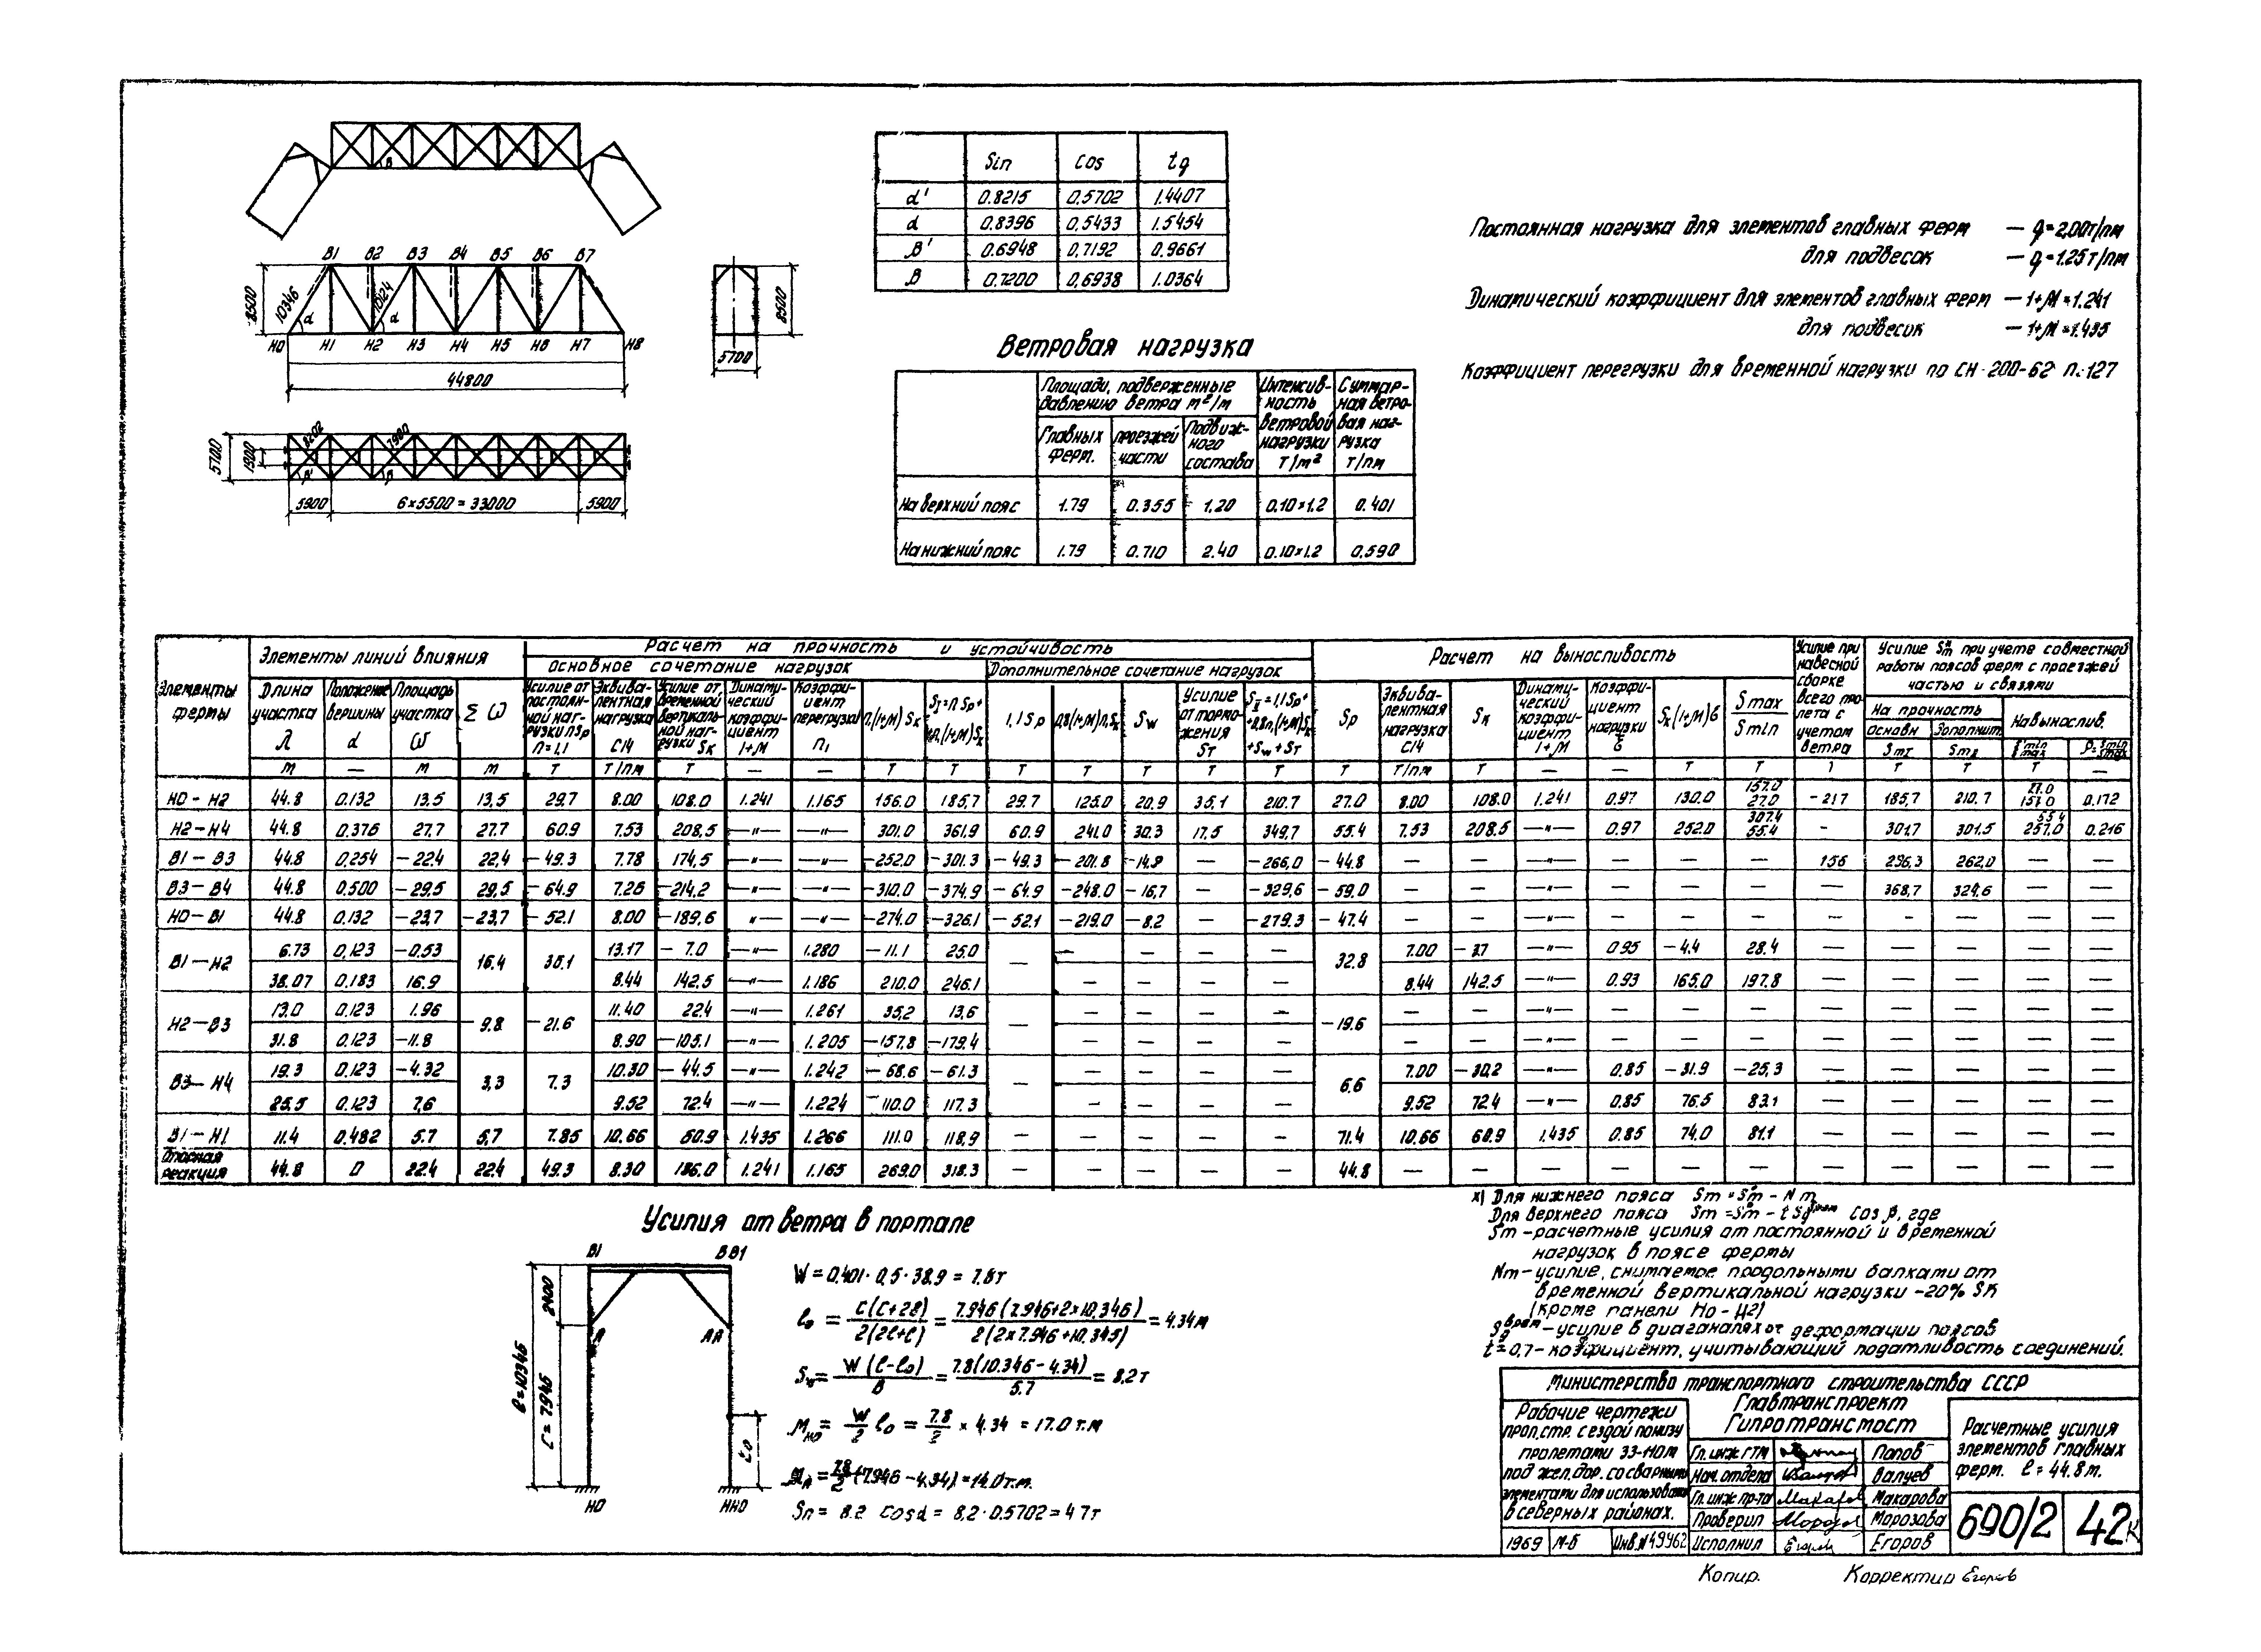 Sin cos tg
α' 0.8215 0.5702 1.4407
α 0.8396 0.5433 1.5454
β' 0.6948 0.7192 0.9661
β 0.7200 0.6938 1.0364
Постоянная нагрузка для элементов главных ферм — q=2.00т/пм
для подвесок — q=1.25т/пм
Динамический коэффициент для элементов главных ферм — 1+М=1.241
для подвесок — 1+М=1.435
Коэффициент перегрузки для временной нагрузки по СН-200-62 п.127
В
В1 В2 В3 В4 В5 В6 В7
8500 10346 α 1024 α
8500
Н0 Н1 Н2 Н3 Н4 Н5 Н6 Н7 Н8
5700
44800
8202 7980
5700 1900
β' β
5900 6×5500=33000 5900
Ветровая нагрузка
Площади, подверженные давлению ветра м²/м
Главных ферм.
проезжей части
Подвижного состава
Интенсивность ветровой нагрузки Т/м²
Суммарная ветровая нагрузка Т/пм
На верхний пояс 1.79 0.355 1.20 0.10×1.2 0.401
На нижний пояс 1.79 0.710 2.40 0.10×1.2 0.590
Элементы фермы
Элементы линий влияния
Расчет на прочность и устойчивость
Основное сочетание нагрузок
Дополнительное сочетание нагрузок
Расчет на выносливость
Усилие при навесной сборке всего пролета с учетом ветра
Усилие Sm* при учете совместной работы поясов ферм с проезжей частью и связями
На прочность На вынослив.
Основн Дополнит
Длина участка λ
Положение вершины α
Площадь участка ω
Σω
Усилие от постоянной нагрузки nSp n=1,1
Эквивалентная нагрузка С14
Усилие от временной вертикальной нагрузки Sк
Динамический коэффициент 1+М
Коэффициент перегрузки n1
n1(1+М)Sк
SI=nSp+n1(1+М)Sк
1,1Sp
0,8(1+М)n1Sк
Sw
Усилие от торможения Sт
SII=1,1Sp+0,8n1(1+М)Sк+Sw+Sт
Sp
Эквивалентная нагрузка С14
Sк
Динамический коэффициент 1+М
Коэффициент нагрузки б
Sк(1+М)б
Smax Smin
м — м м т т/пм т — — т т т т т т т т т/пм т — — т т т т т т —
Н0-Н2 44.8 0.132 13.5 13,5 29.7 8.00 108.0 1.241 1.165 156.0 185,7 29.7 125.0 20,9 35,1 210.7 27.0 8.00 108.0 1.241 0.97 130.0 157.0 27.0 -217 185,7 210.7 27.0 157.0 0.172
Н2-Н4 44.8 0.376 27.7 27.7 60.9 7.53 208,5 —"— —"— 301.0 361,9 60.9 241.0 30.3 17,5 349,7 55.4 7.53 208.5 —"— 0.97 252.0 307.4 55.4 - 301,7 301.5 55.4 257.0 0.216
В1-В3 44.8 0.254 -22.4 22,4 -49.3 7.78 174,5 —"— —"— -252.0 -301.3 -49.3 -201.8 -14.9 — -266,0 -44.8 — — —"— — — — 156 296,3 262,0 — —
В3-В4 44.8 0.500 -29.5 29,5 -64.9 7.26 -214.2 —"— —"— -310.0 -374,9 -64,9 -248.0 -16,7 — -329,6 -59.0 — — —"— — — — — 368,7 324,6 — —
Н0-В1 44.8 0.132 -23,7 -23,7 -52.1 8.00 -189,6 " —"— -274.0 -326.1 -52.1 -219.0 -8.2 — -279.3 -47.4 — — —"— — — — — — — — —
В1-Н2 6.73 0,123 -0.53 16.4 36.1 13.17 -7.0 —"— 1.280 -11.1 25.0 — — — — — 32.8 7.00 -3.7 —"— 0.95 -4.4 28.4 — — — — —
38.07 0.183 16.9 8.44 142.5 —"— 1.186 210.0 246.1 — — — — 8.44 142.5 —"— 0.93 165.0 197.8 — — — — —
Н2-В3 13.0 0.123 1.96 -9.8 -21.6 11.40 22.4 —"— 1.261 35,2 13,6 — — — — — -19.6 — — —"— — — — — — — — —
31.8 0.123 -11.8 8.90 -105.1 —"— 1.205 -157,8 -179.4 — — — — — — —"— — — — — — — — —
В3-Н4 19.3 0.123 -4.32 3,3 7.3 10.30 -44.5 —"— 1.242 -68.6 -61.3 — — — — — 6.6 7.00 -30,2 —"— 0.85 -31.9 -25,3 — — — — —
25.5 0.123 7,6 9.52 72.4 —"— 1.224 110.0 117.3 — — — — 9.52 72.4 —"— 0.85 76.5 83.1 — — — — —
В1-Н1 11.4 0.482 5.7 5,7 7.85 10.66 60.9 1.435 1.266 111.0 118,9 — — — — — 71.4 10.66 60.9 1,435 0.85 74.0 81.1 — — — — —
Опорная реакция 44.8 0 22.4 22.4 49.3 8.30 186.0 1.241 1.165 269.0 318.3 — — — — — 44.8 — — — — — — — — — — —
х) Для нижнего пояса Sm=S'm-Nm
Для верхнего пояса Sm=S'm-tSд врем cos β, где
Sm-расчетные усилия от постоянной и временной
нагрузок в поясе фермы
Nm-усилие, снимаемое продольными балками от
временной вертикальной нагрузки -20% Sк
(кроме панели Н0-Н2)
Sд врем-усилие в диагоналях от деформации поясов
t=0,7-коэффициент, учитывающий податливость соединений.
Усилия от ветра в портале
В1 ВВ1
2400
А АА
ℓ=10346
С=7946
ℓ0
Н0 НН0
W=0,401·0,5·38,9=7.8т
ℓ0 = C(C+2ℓ) / 2(2ℓ+C) = 7.946(7.946+2×10,346) / 2(2×7.946+10,345) = 4.34м
Sw = W(ℓ-ℓ0) / В = 7.8(10.346-4.34) / 5.7 = 8,2т
Mно = W/2 ℓ0 = 7.8/2 × 4.34 = 17.0 т.м
MА = 7.8/2 (7.946-4.34)=14.0т.м.
Sп = 8.2 cosα = 8.2·0.5702=4 7т
Министерство транспортного строительства СССР
Главтранспроект
Гипротрансмост
Рабочие чертежи
прол.стр. с ездой понизу
пролетами 33-110м
под жел.дор. со сварными
элементами для использован.
в северных районах.
1969 М-б Инв.№49962
Гл.инж.ГТМ Попов
Нач.отдела Валуев
Гл.инж.пр-та Макарова
Проверил Морозова
Исполнил Егоров
Расчетные усилия
элементов главных
ферм. ℓ=44.8м.
690/2 42к
Копир. Корректир Егоров